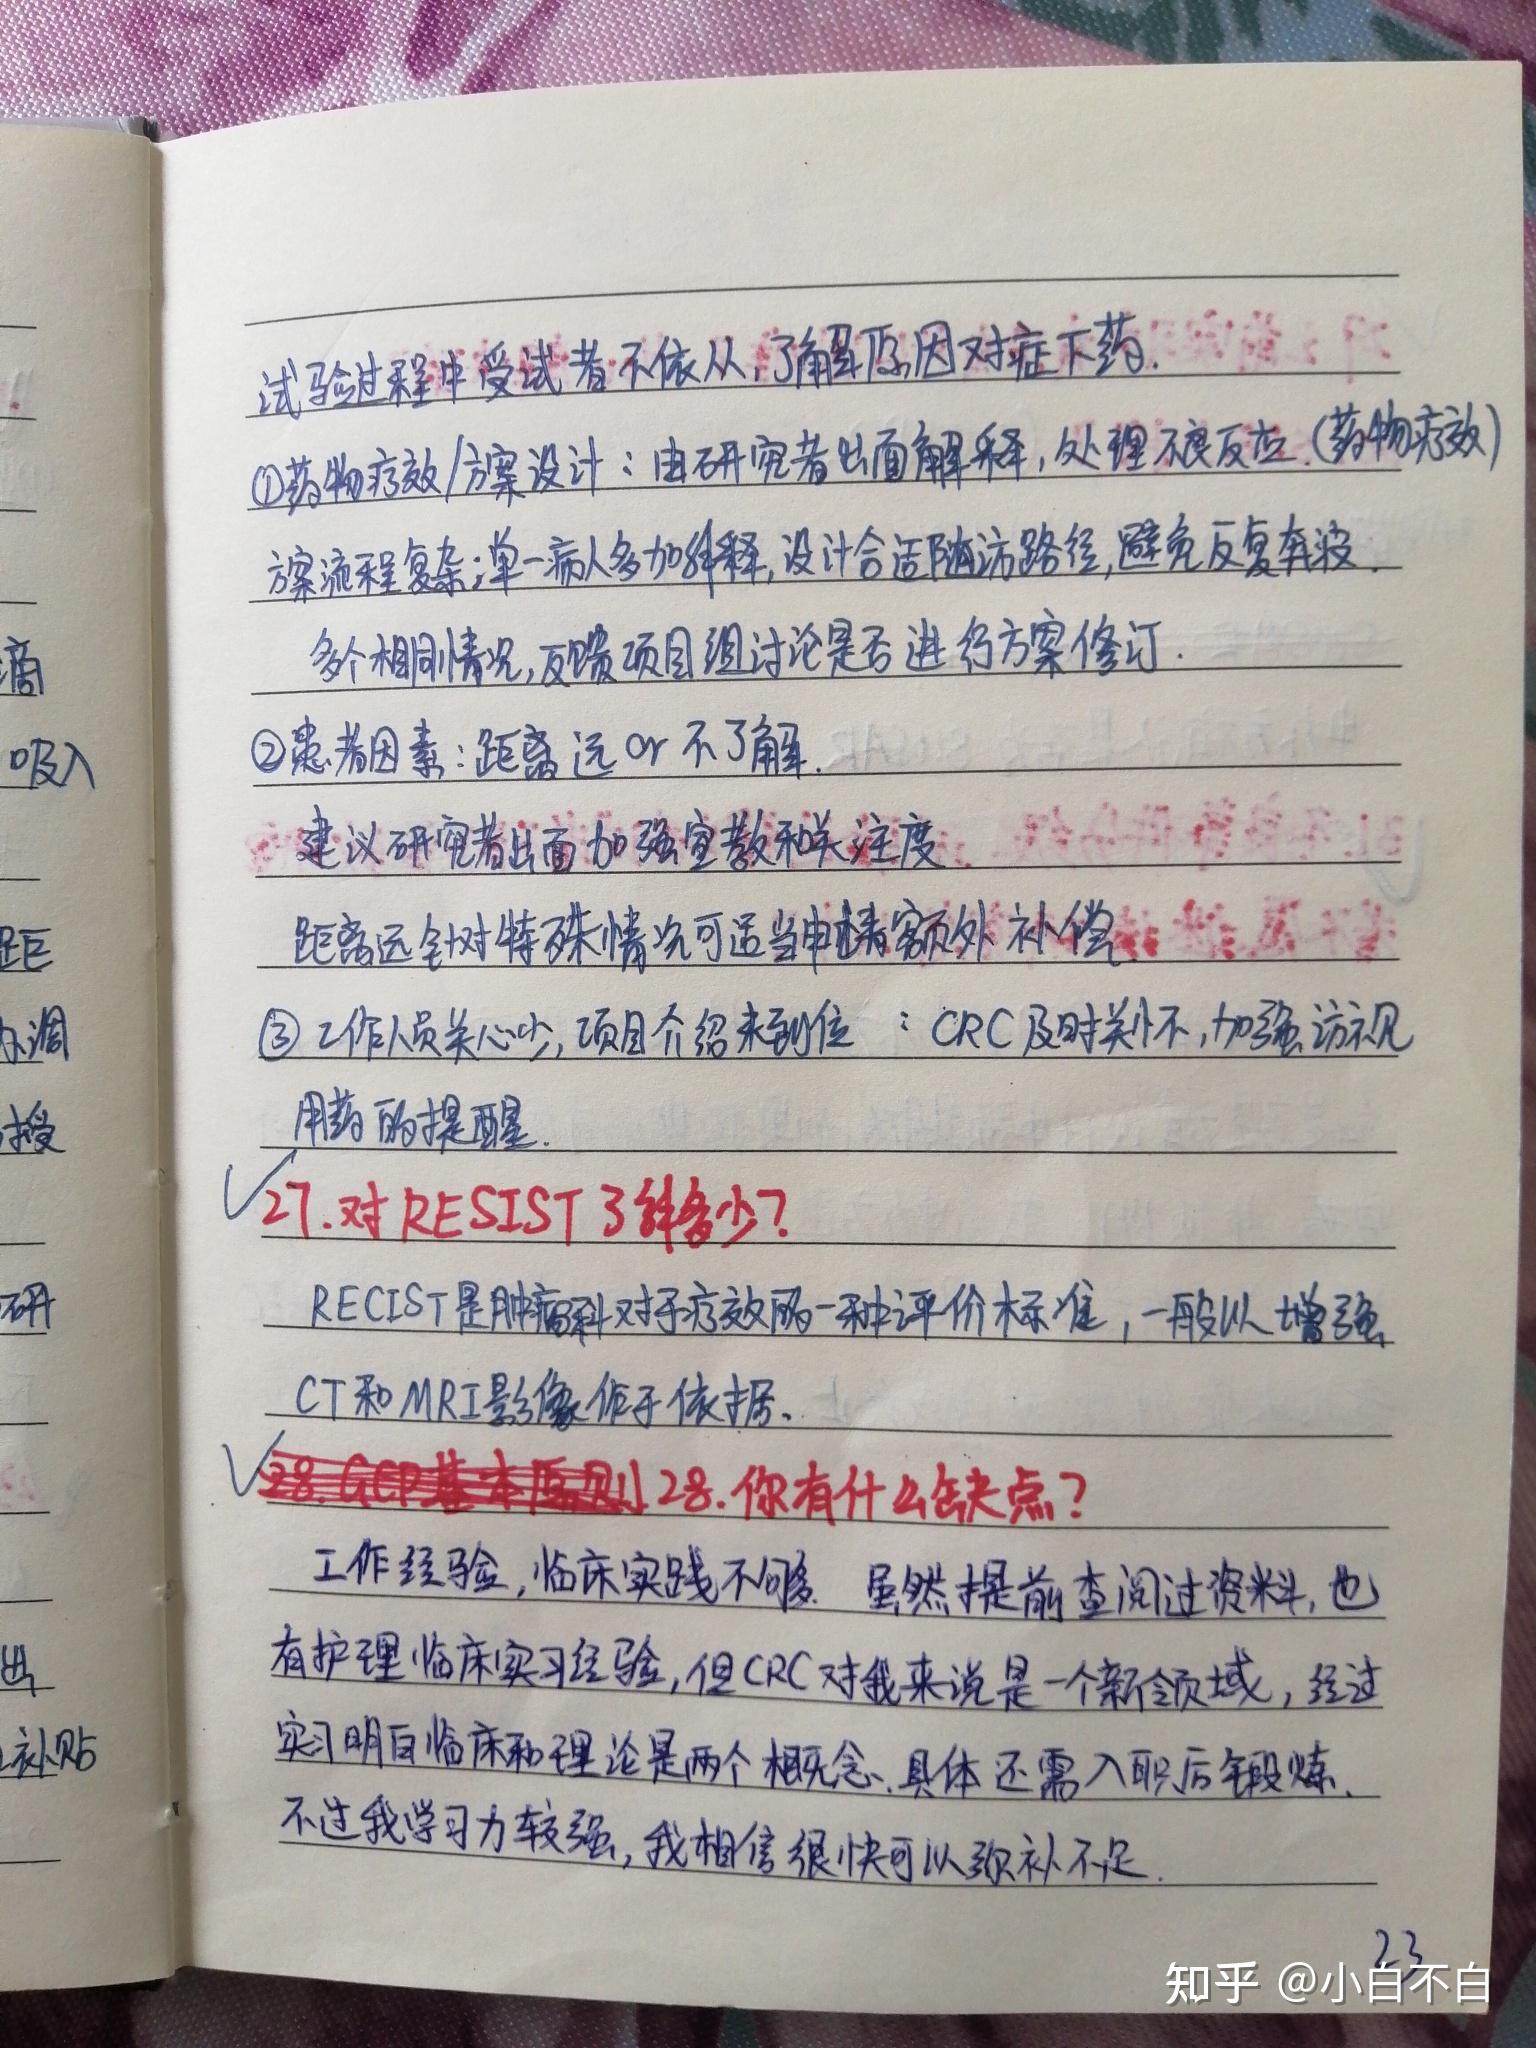 试验过程中受试者不依从,了解原因对症下药.
①药物疗效/方案设计:由研究者出面解释,处理不良反应.(药物疗效)
方案流程复杂;单一病人多加解释,设计合适随访路径,避免反复奔波.
多个相同情况,反馈项目组讨论是否进行方案修订.
②患者因素:距离远or不了解.
建议研究者出面加强宣教和关注度
距离远针对特殊情况可适当申请额外补偿.
③工作人员关心少,项目介绍未到位:CRC及时关怀,加强访视
用药的提醒.
27.对RESIST了解多少?
RECIST是肿瘤科对于疗效的一种评价标准,一般以增强
CT和MRI影像作于依据.
28.GCP基本原则 28.你有什么缺点?
工作经验,临床实践不够 虽然提前查阅过资料,也
有护理临床实习经验,但CRC对我来说是一个新领域,经过
实习明白临床和理论是两个概念.具体还需入职后锻炼.
不过我学习力较强,我相信很快可以弥补不足.
23
知乎 @小白不白
滴
吸入
距
调
授
研
出
补贴